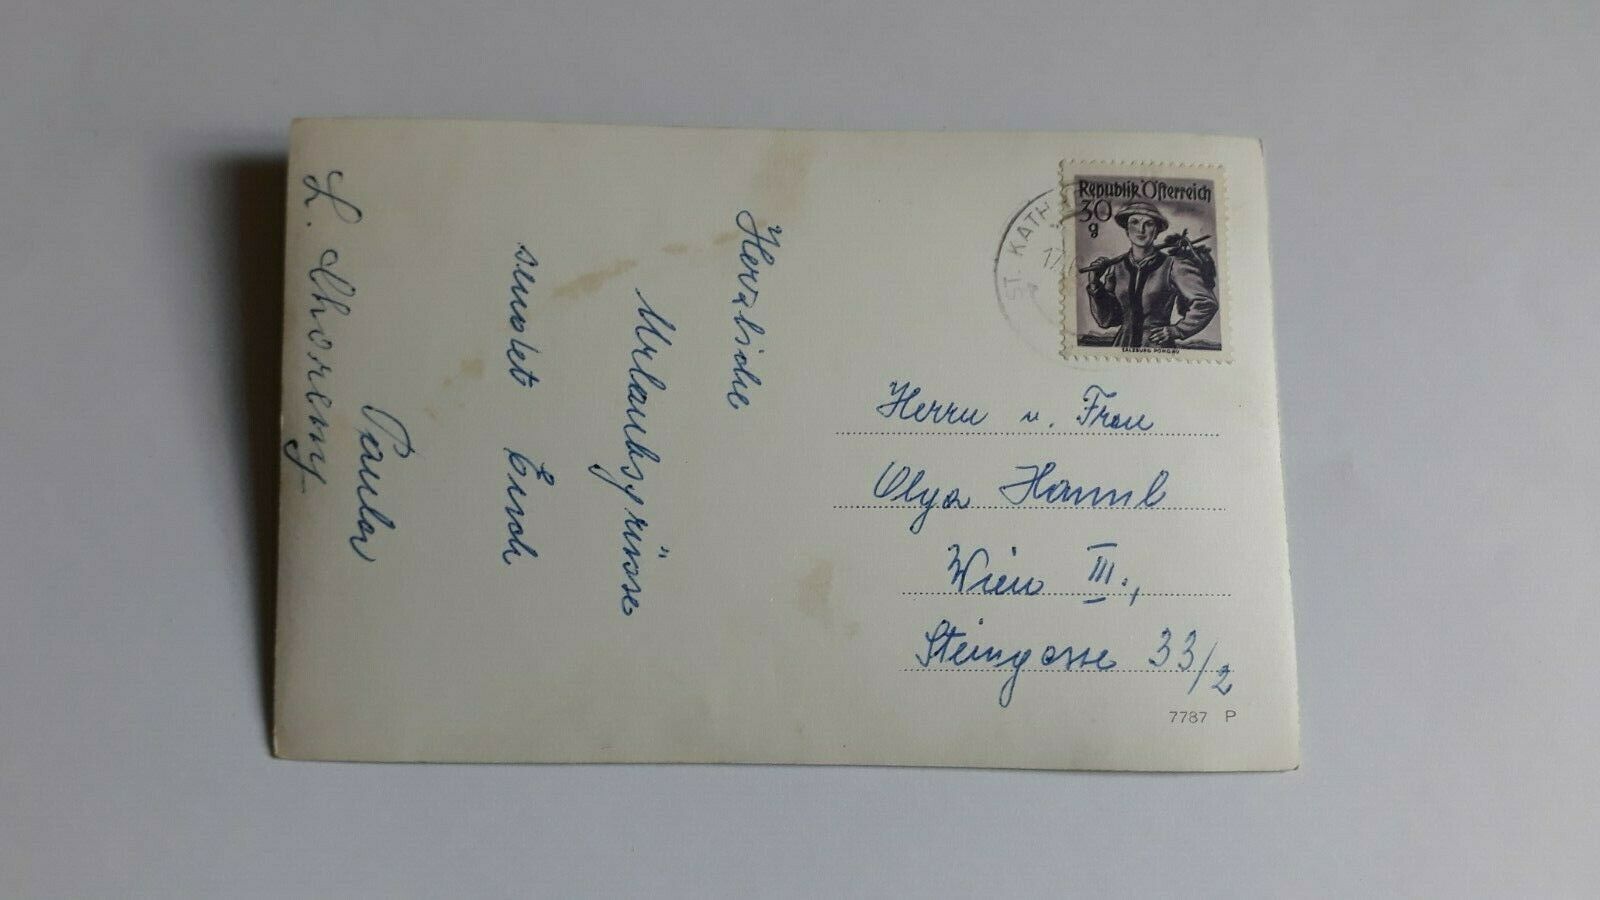 Herzliche
Urlaubsgrüsse
sendet Euch
Paula
L.
ST. KATH
17
Republik Österreich
30
g
SALZBURG PONGAU
Herrn u. Frau
Olga Hamml
Wien III.,
Steingasse 33/2
7787 P